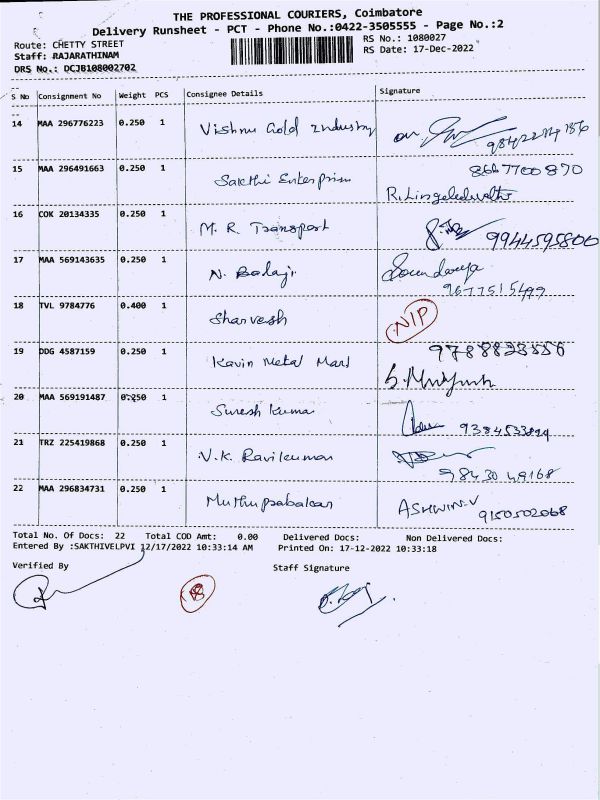 THE PROFESSIONAL COURIERS, Coimbatore
Delivery Runsheet - PCT - Phone No.:0422-3505555 - Page No.:2
Route: CHETTY STREET RS No.: 1080027
Staff: RAJARATHINAM RS Date: 17-Dec-2022
DRS No.: DCJB108002702
S No Consignment No Weight PCS Consignee Details Signature
14 MAA 296776223 0.250 1 Vishnu Gold Industry
15 MAA 296491663 0.250 1 Sakthi Enterprises 8667700870
16 COK 20134335 0.250 1 M. R. Transport 9944595800
17 MAA 569143635 0.250 1 N. Balaji Soundarya
9677515499
18 TVL 9784776 0.400 1 Sharvesh NIP
19 DDG 4587159 0.250 1 Kavin Metal Mart 9788823556
20 MAA 569191487 0.250 1 Suresh Kumar
21 TRZ 225419868 0.250 1 V.K. Ravikumar
9843049168
22 MAA 296834731 0.250 1 Muthuprabakar ASHWIN.V 9150502068
Total No. Of Docs: 22 Total COD Amt: 0.00 Delivered Docs: Non Delivered Docs:
Entered By :SAKTHIVELPVI 12/17/2022 10:33:14 AM Printed On: 17-12-2022 10:33:18
Verified By Staff Signature